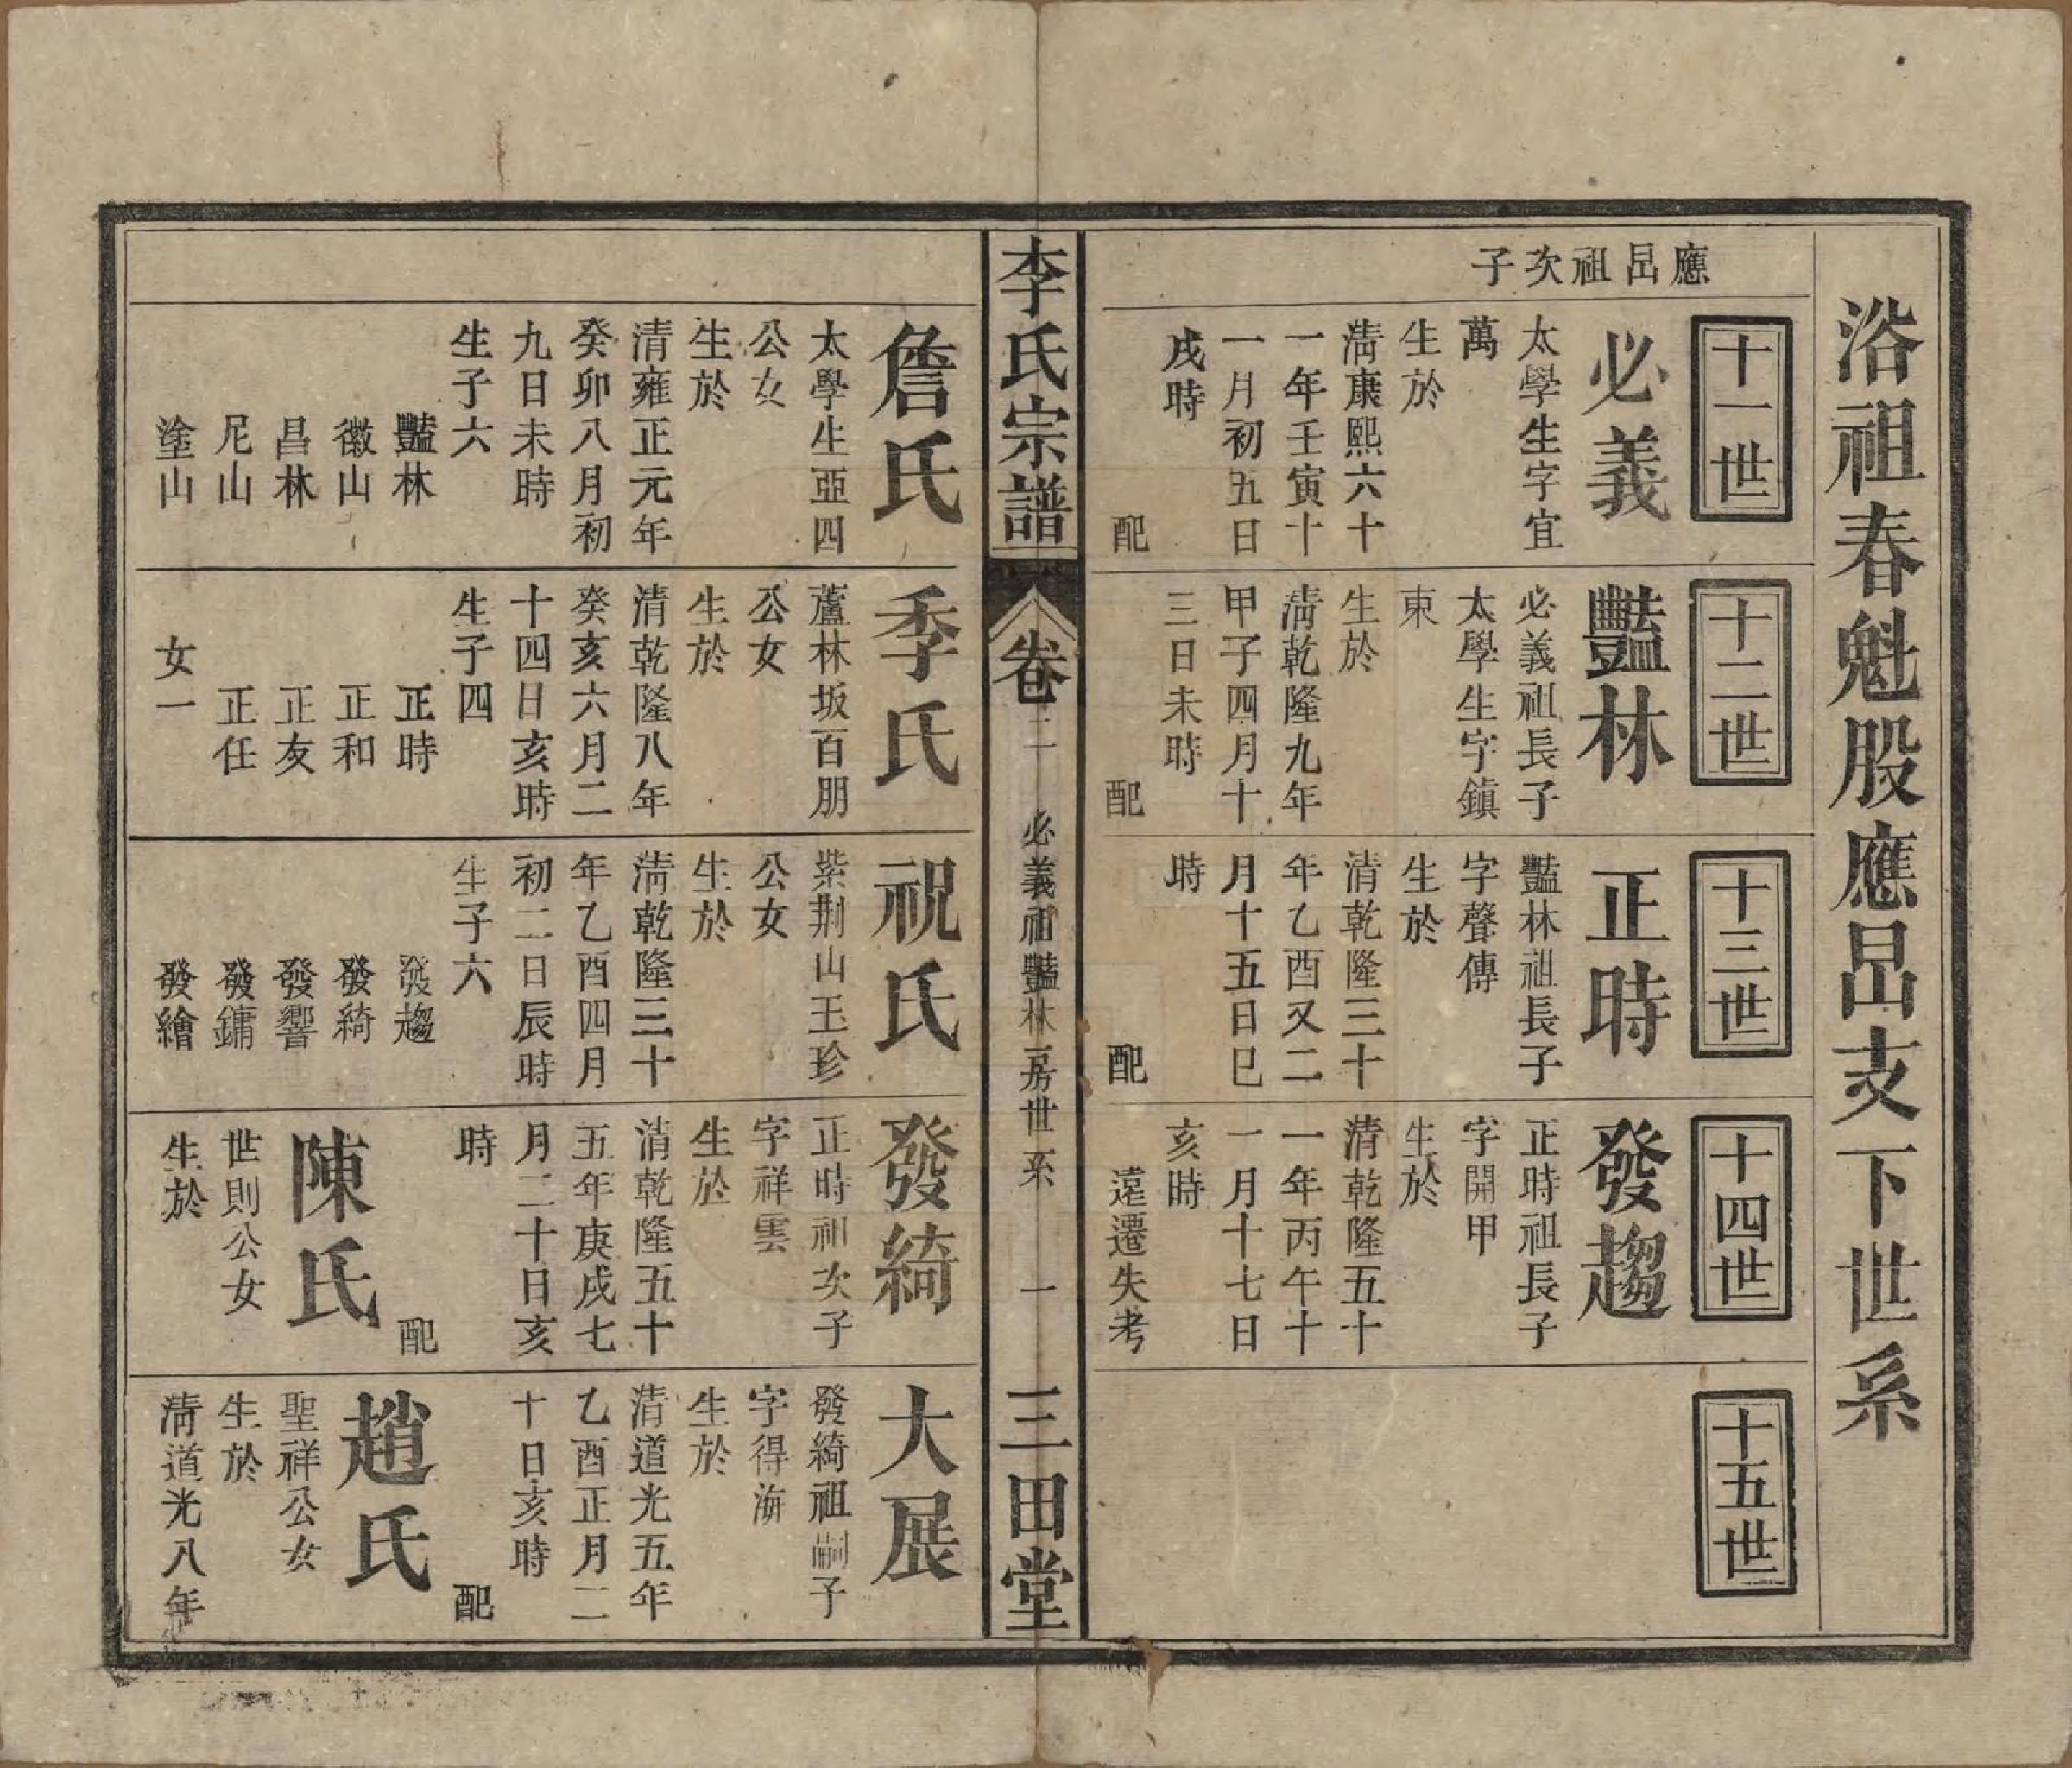 浴祖春魁股應昌支下世系
應昌祖次子
十一世
必義
太學生字宜
萬
生於
淸康熙六十
一年壬寅十
一月初五日
戌時
配
十二世
豔林
必義祖長子
太學生字鎮
東
生於
淸乾隆九年
甲子四月十
三日未時
配
十三世
正時
豔林祖長子
字聲傳
生於
清乾隆三十
年乙酉又二
月十五日巳
時
配
十四世
發趨
正時祖長子
字開甲
生於
清乾隆五十
一年丙午十
一月十七日
亥時
遠遷失考
十五世
李氏宗譜
卷二
必義祖豔林房世系
一
三田堂
詹氏
太學生亞四
公女
生於
清雍正元年
癸卯八月初
九日未時
生子六
豔林
徽山
昌林
尼山
塗山
季氏
蘆林坂百朋
公女
生於
清乾隆八年
癸亥六月二
十四日亥時
生子四
正時
正和
正友
正任
女一
祝氏
紫荆山玉珍
公女
生於
淸乾隆三十
年乙酉四月
初二日辰時
生子六
發趨
發綺
發響
發鏞
發繪
發綺
正時祖次子
字祥雲
生於
清乾隆五十
五年庚戌七
月二十日亥
時
配
陳氏
世則公女
生於
大展
發綺祖嗣子
字得海
生於
清道光五年
乙酉正月二
十日亥時
配
趙氏
聖祥公女
生於
淸道光八年